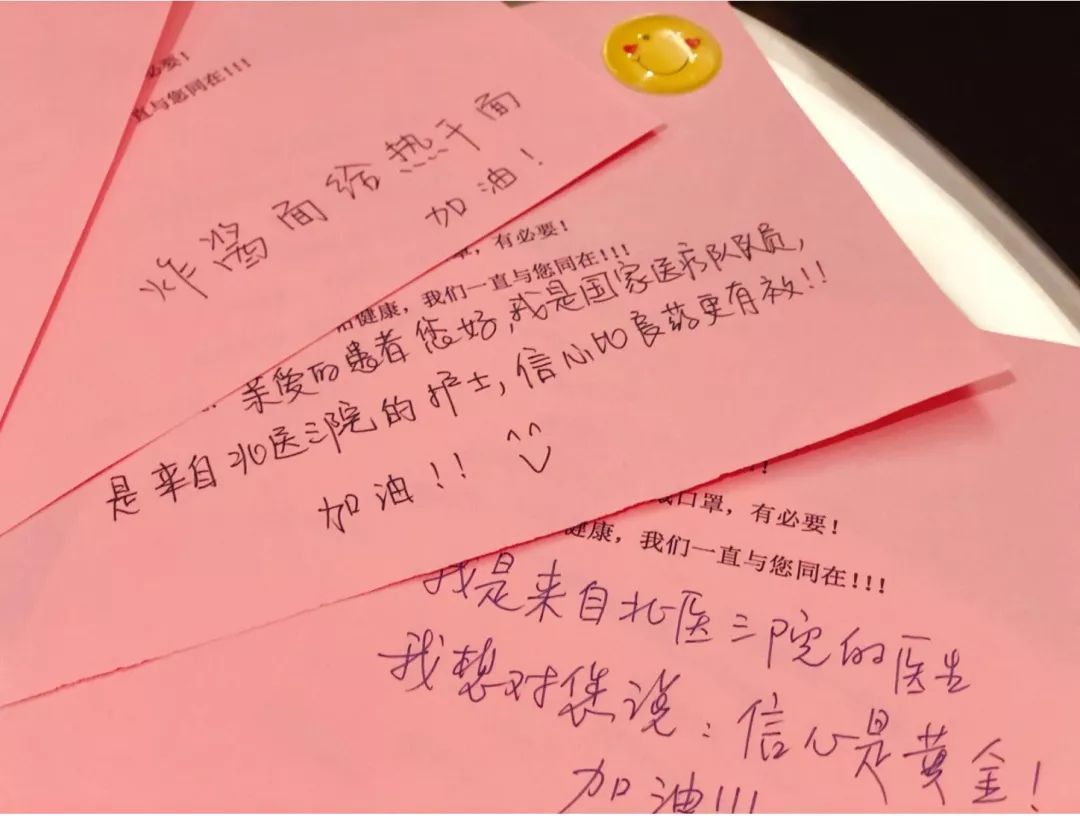 必要!
直与您同在!!!
炸酱面给热干面
加油!
，有必要!
健康，我们一直与您同在!!!
亲爱的患者您好,我是国家医疗队队员,
是来自北医三院的护士,信心比良药更有效!!
加油!!
口罩，有必要!
健康，我们一直与您同在!!!
我是来自北医三院的医生
我想对您说:信心是黄金!
加油!!!